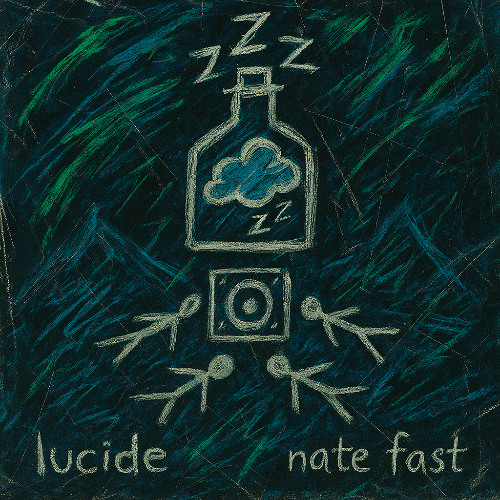 z z z
z z
lucide nate fast